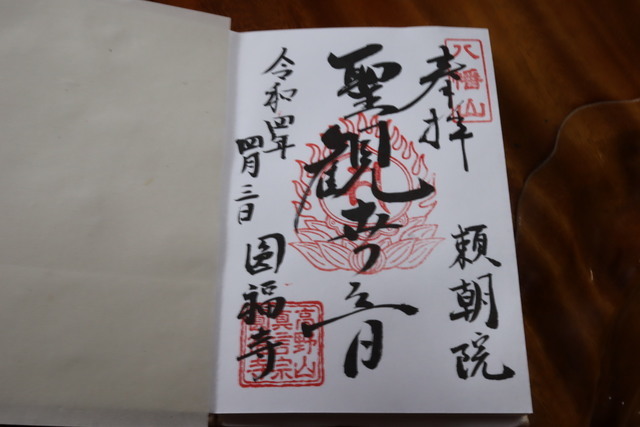 八幡山
奉拝
頼朝院
聖観世音
令和四年
四月三日
圓福寺
高野山
真言宗
圓福寺